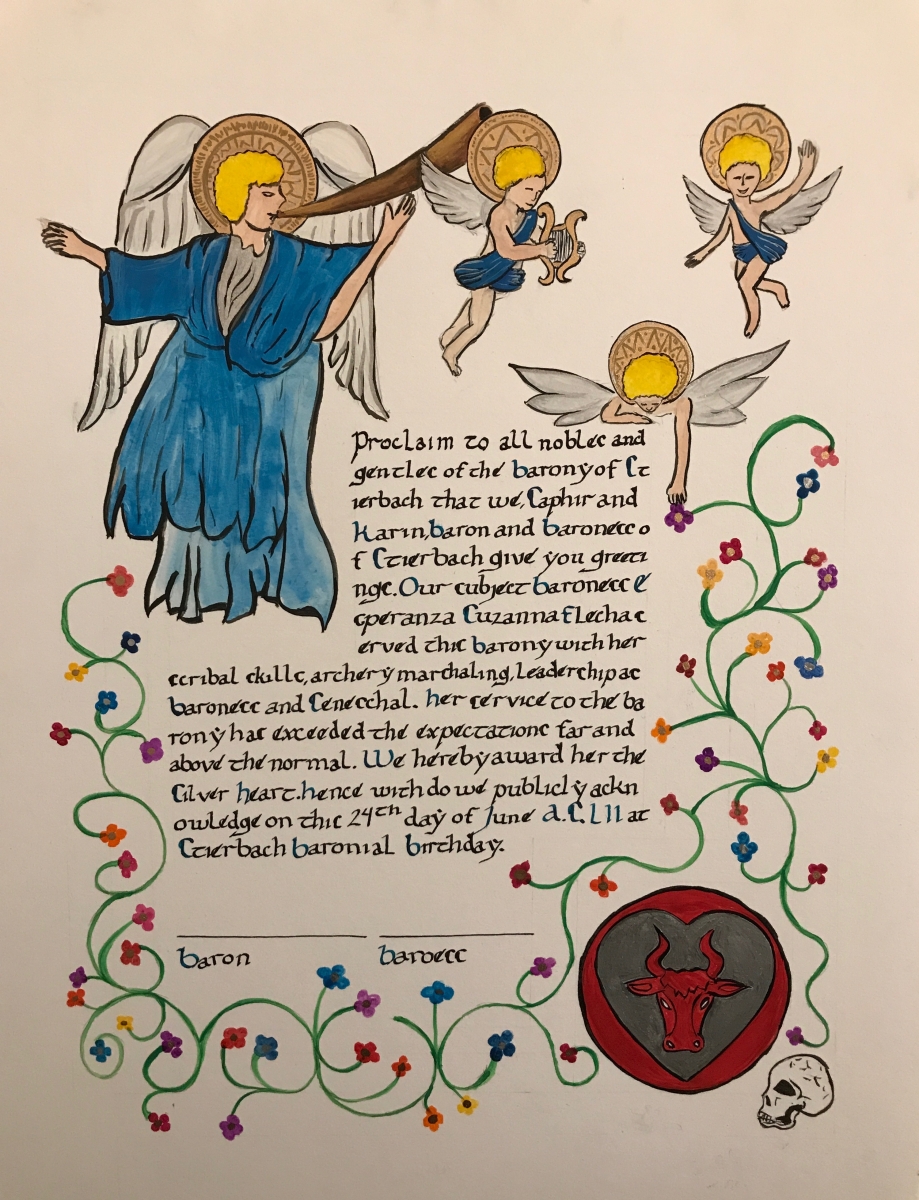 Proclaim to all nobles and
gentles of the barony of St
ierbach that we, Saphir and
Karin, baron and baroness o
f Stierbach give you greeti
ngs. Our subject baroness E
speranza Suzanna Flecha s
erved this barony with her
scribal skills, archery marshaling, leadership as
baroness and Seneschal. her service to the ba
rony has exceeded the expectations far and
above the normal. We hereby award her the
Silver heart. hence with do we publicly ackn
owledge on this 24th day of June A.S. LII at
Stierbach baronial birthday.
baron baroess